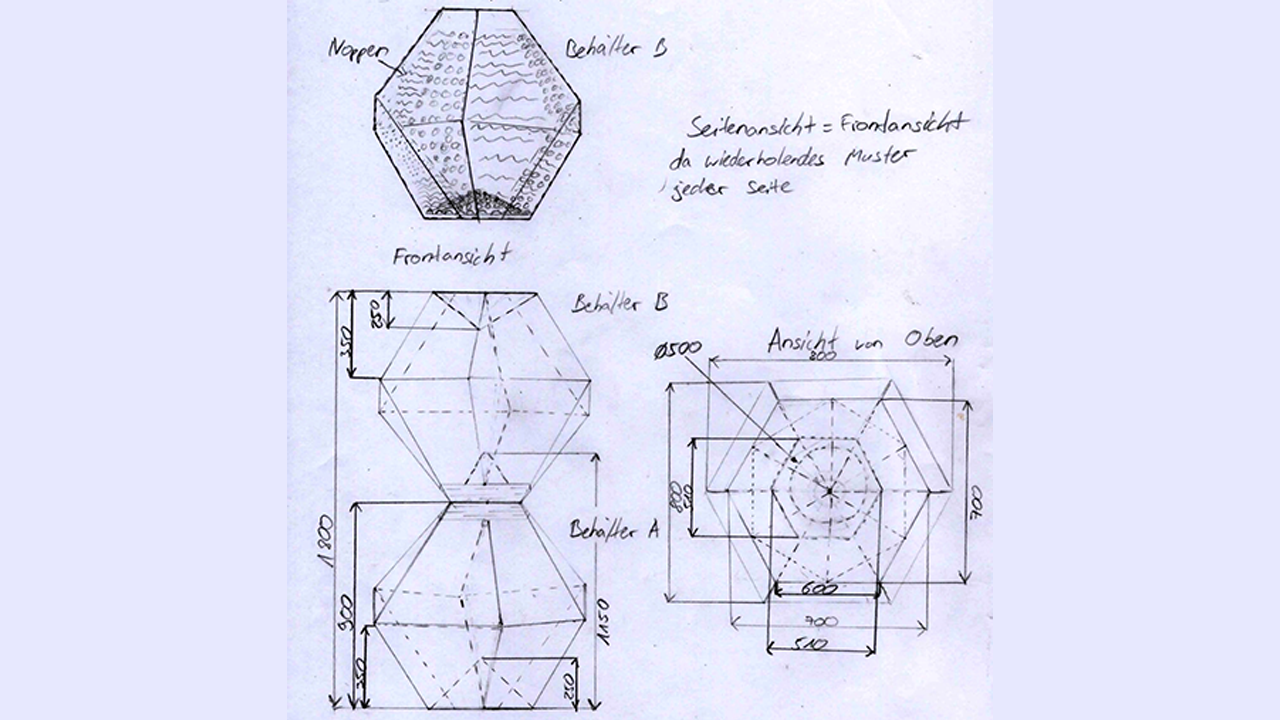 Noppen
Behälter B
Seitenansicht = Frontansicht
da wiederholendes Muster
jeder Seite
Frontansicht
Behälter B
250
350
1800
900
350
Behälter A
1150
250
Ansicht von Oben
Ø500
800
800
510
700
600
700
510